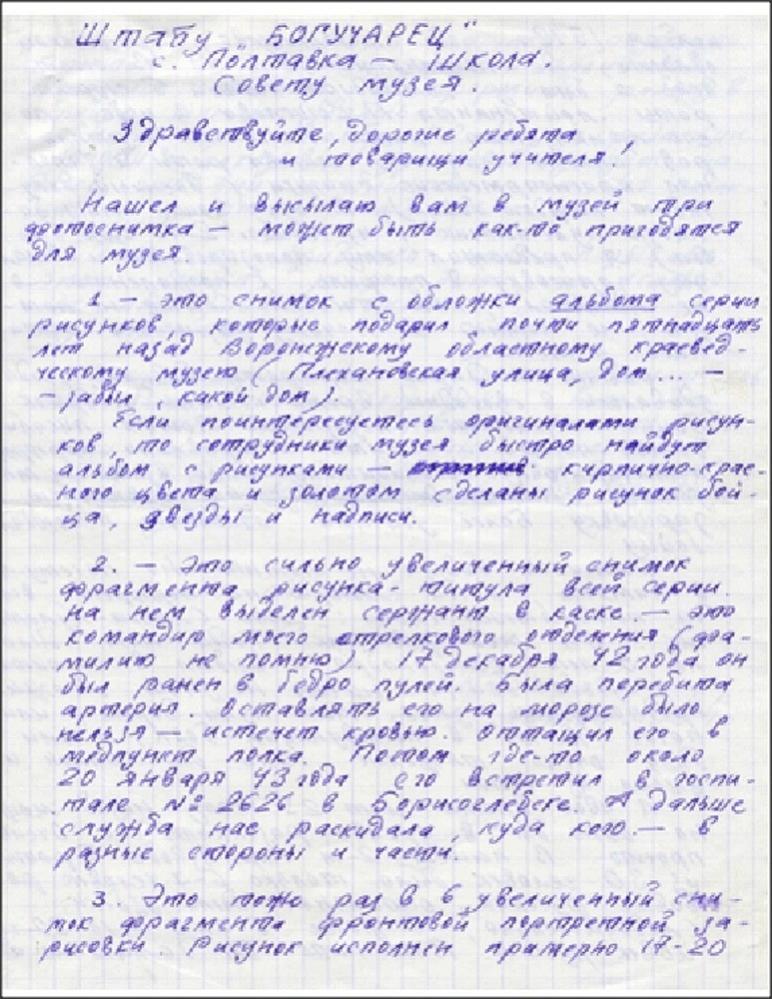 Штабу „БОГУЧАРЕЦ"
с. Полтавка — школа.
Совету музея.
Здравствуйте, дорогие ребята
и товарищи учителя!
Нашел и высылаю вам в музей три
фотоснимка — может быть как-то пригодятся
для музея
1 — это снимок с обложки альбома серии
рисунков которые подарил почти пятнадцать
лет назад Воронежскому областному краевед-
ческому музею (Плехановская улица, дом... —
— забыл, какой дом).
Если поинтересуетесь оригиналами рисун-
ков, то сотрудники музея быстро найдут
альбом с рисунками — кирпично-крас-
ного цвета и золотом сделаны рисунок бой-
ца, звезды и надписи.
2. — Это сильно увеличенный снимок
фрагмента рисунка-титула всей серии.
на нем выделен сержант в каске — это
командир моего стрелкового отделения (фа-
милию не помню). 17 декабря 42 года он
был ранен в бедро пулей. Была перебита
артерия. Оставлять его на морозе было
нельзя — истечет кровью. Оттащил его в
медпункт полка. Потом где-то около
20 января 43 года его встретил в госпи-
тале № 2626 в Борисоглебске. А дальше
служба нас раскидала, куда кого — в
разные стороны и части.
3. Это тоже раз в 6 увеличенный сни-
мок фрагмента фронтовой портретной за-
рисовки. Рисунок исполнен примерно 17-20